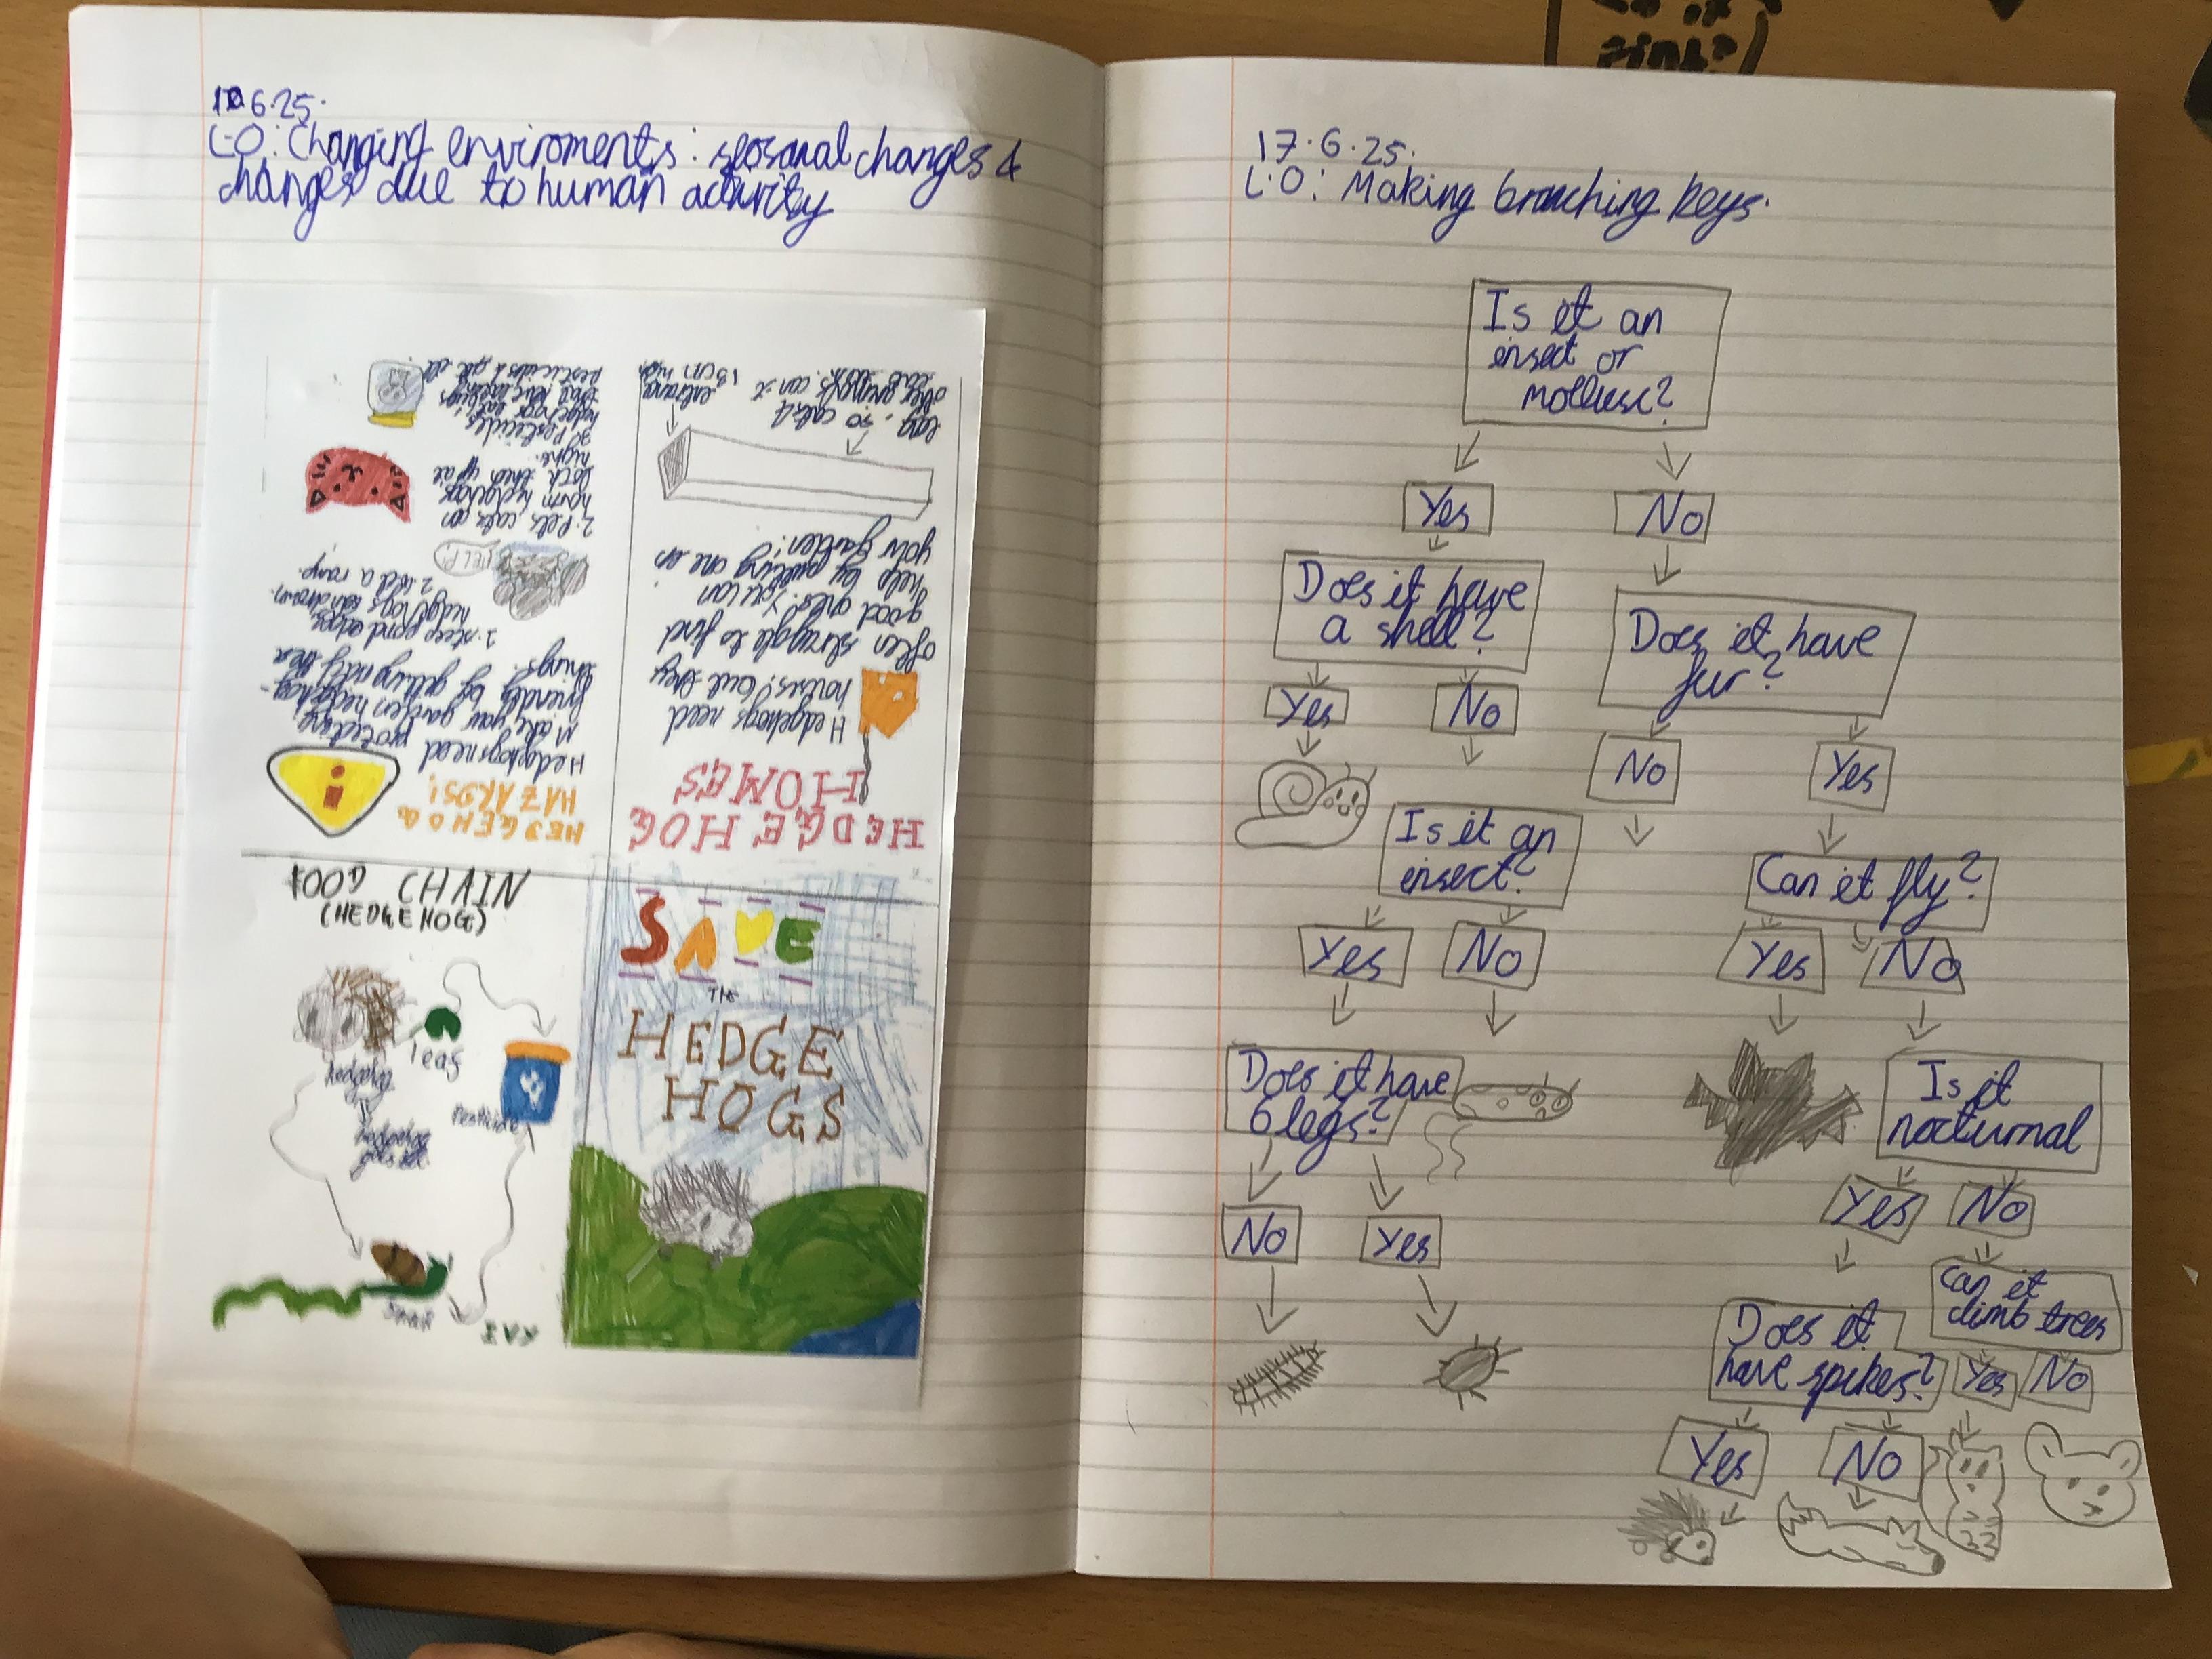 10.6.25.
L-O: Changing enviroments: seosanal changes &
changes due to human activity
HEDGEHOG
HAZARDS!
Hedgehogs need protecting
Make your garden hedgehog-
friendly by getting rid of these
things!
1. Steep pond edges
hedgehogs can drown.
add a ramp.
HELP!
2. Pets, cats can
harm hedgehogs
lock them up at
night.
3. Pesticides
hedgehogs eat
bugs
pesticides & get ill.
HEDGE HOG
HOMES
Hedgehogs need
houses! but they
often struggle to find
good ones. You can
help by putting one in
your garden!
long, so cats &
other animals can't
entrance
13cm high
FOOD CHAIN
(HEDGEHOG)
hedgehog
hedgehog
gets ill.
leaf
Pesticide
Snail
IVY
SAVE
THE
HEDGE
HOGS
17.6.25.
L.O: Making branching keys.
Is it an
insect or
mollusc?
Yes
No
Does it have
a shell?
Does it have
fur?
Yes
No
No
Yes
Is it an
insect?
Can it fly?
Yes
No
Yes
No
Does it have
6 legs?
Is it
nocturnal
No
Yes
Yes
No
Can it
climb trees
Does it
have spikes?
Yes
No
Yes
No